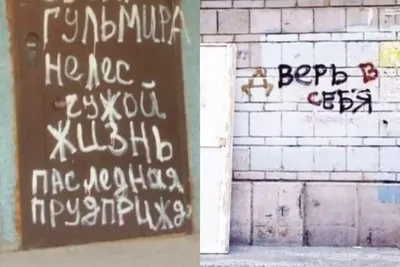 ГУЛЬМИРА
НЕЛЕС
ЧУЖОЙ
ЖИЗНЬ
ПАСЛЕДНАЯ
ПРУДПРИЖД
Д ВЕРЬ В
СЕБЯ